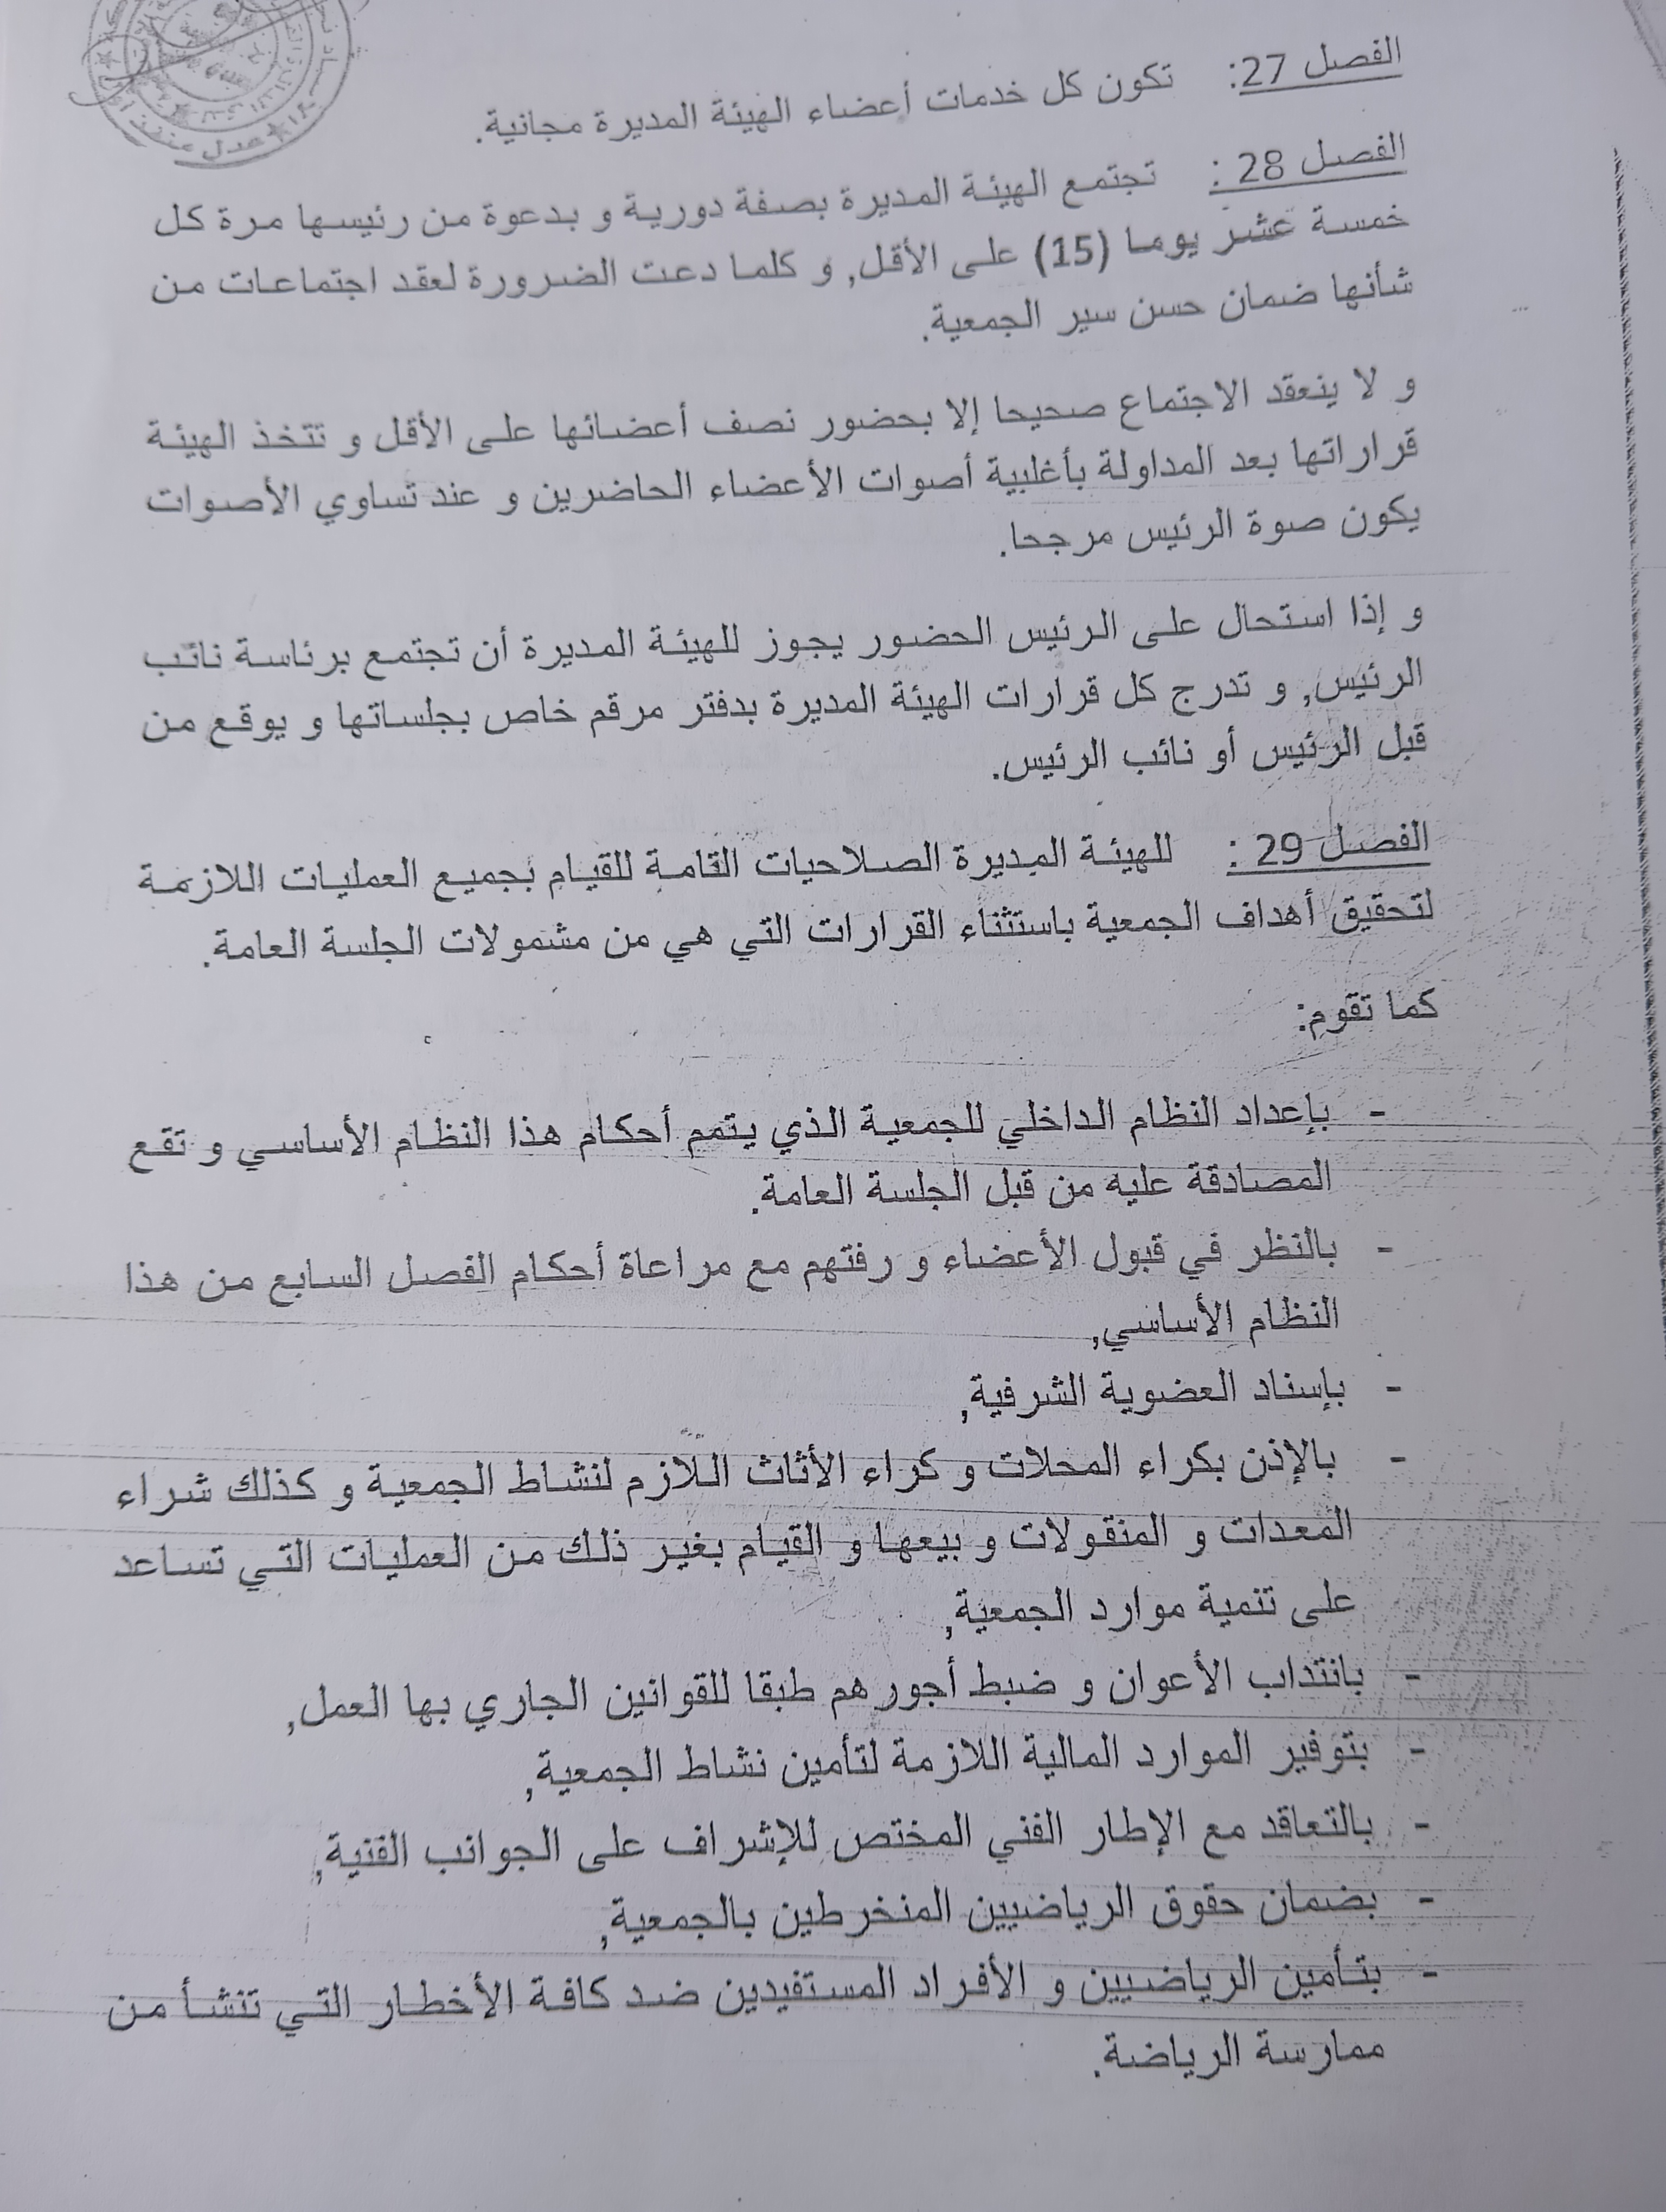 الفصل 27: تكون كل خدمات أعضاء الهيئة المديرة مجانية.
الفصل 28 : تجتمع الهيئة المديرة بصفة دورية و بدعوة من رئيسها مرة كل
خمسة عشر يوما (15) على الأقل, و كلما دعت الضرورة لعقد اجتماعات من
شأنها ضمان حسن سير الجمعية.
و لا ينعقد الاجتماع صحيحا إلا بحضور نصف أعضائها على الأقل و تتخذ الهيئة
قراراتها بعد المداولة بأغلبية أصوات الأعضاء الحاضرين و عند تساوي الأصوات
يكون صوة الرئيس مرجحا.
و إذا استحال على الرئيس الحضور يجوز للهيئة المديرة أن تجتمع برئاسة نائب
الرئيس, و تدرج كل قرارات الهيئة المديرة بدفتر مرقم خاص بجلساتها و يوقع من
قبل الرئيس أو نائب الرئيس.
الفصل 29 : للهيئة المديرة الصلاحيات التامة للقيام بجميع العمليات اللازمة
لتحقيق أهداف الجمعية باستثناء القرارات التي هي من مشمولات الجلسة العامة.
كما تقوم:
- بإعداد النظام الداخلي للجمعية الذي يتمم أحكام هذا النظام الأساسي و تقع
المصادقة عليه من قبل الجلسة العامة.
- بالنظر في قبول الأعضاء و رفتهم مع مراعاة أحكام الفصل السابع من هذا
النظام الأساسي,
- بإسناد العضوية الشرفية,
- بالإذن بكراء المحلات و كراء الأثاث اللازم لنشاط الجمعية و كذلك شراء
المعدات و المنقولات و بيعها و القيام بغير ذلك من العمليات التي تساعد
على تنمية موارد الجمعية,
- بانتداب الأعوان و ضبط أجورهم طبقا للقوانين الجاري بها العمل,
- بتوفير الموارد المالية اللازمة لتأمين نشاط الجمعية,
- بالتعاقد مع الإطار الفني المختص للإشراف على الجوانب الفنية,
- بضمان حقوق الرياضيين المنخرطين بالجمعية,
- بتأمين الرياضيين و الأفراد المستفيدين ضد كافة الأخطار التي تنشأ من
ممارسة الرياضة.